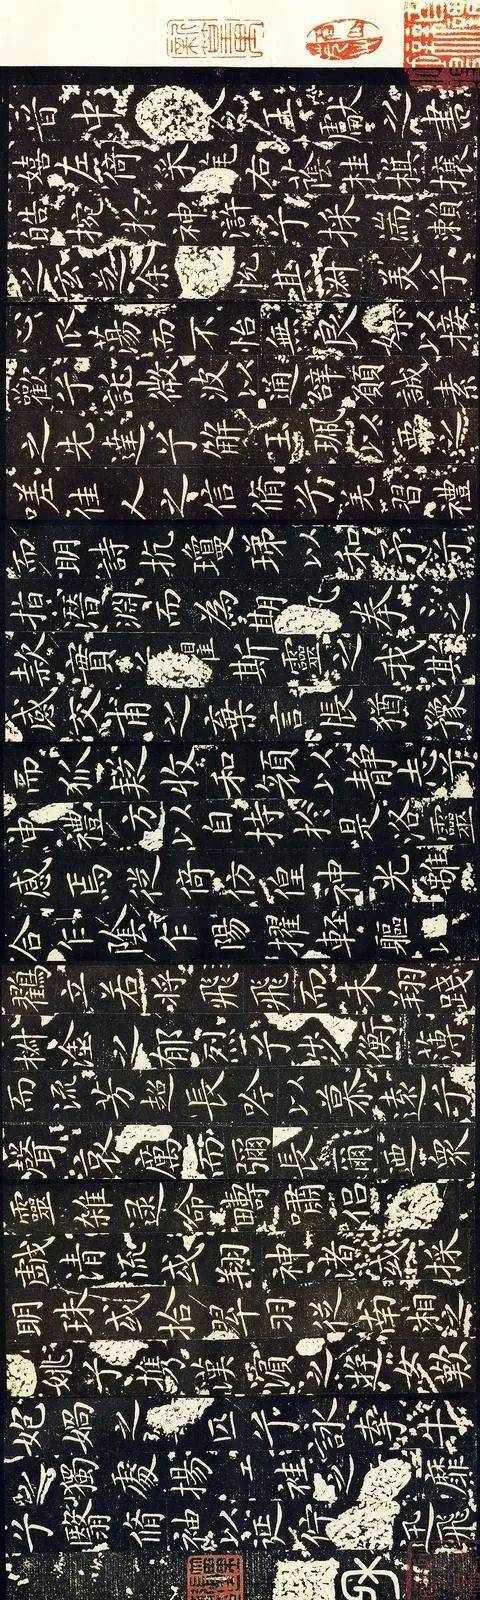 晉中 王獻之書
嬉左倚采旄右蔭桂旗攘
皓捥於神滸兮採湍瀨
之玄芝余 悅其淑美兮
心振蕩而不怡無良媒以接
歡兮託微波以通辭願誠素
之先達兮解玉珮以要之
嗟佳人之信脩兮羌習禮
而明詩抗瓊珶以和予兮
指潛淵而為期 拳之
款實 懼斯靈之我欺
感交甫之棄言悵猶豫
而狐疑收和顏以靜志兮
申禮 以自持於是洛靈
感焉徙倚彷徨神光離
合乍陰乍陽擢輕軀
鶴立若將飛飛而未翔踐
椒塗之郁烈兮步衡薄
而流芳超長吟以慕遠兮
聲哀 而彌長爾迺眾
靈雜遝命疇嘯侶
戲清流或翔神渚或採
明珠或拾翠羽從南湘之
姚兮攜漢濱之游女歎
匏媧之 匹兮詠牽牛
之獨處揚 袿之 靡
兮翳脩袖以延佇 迅飛